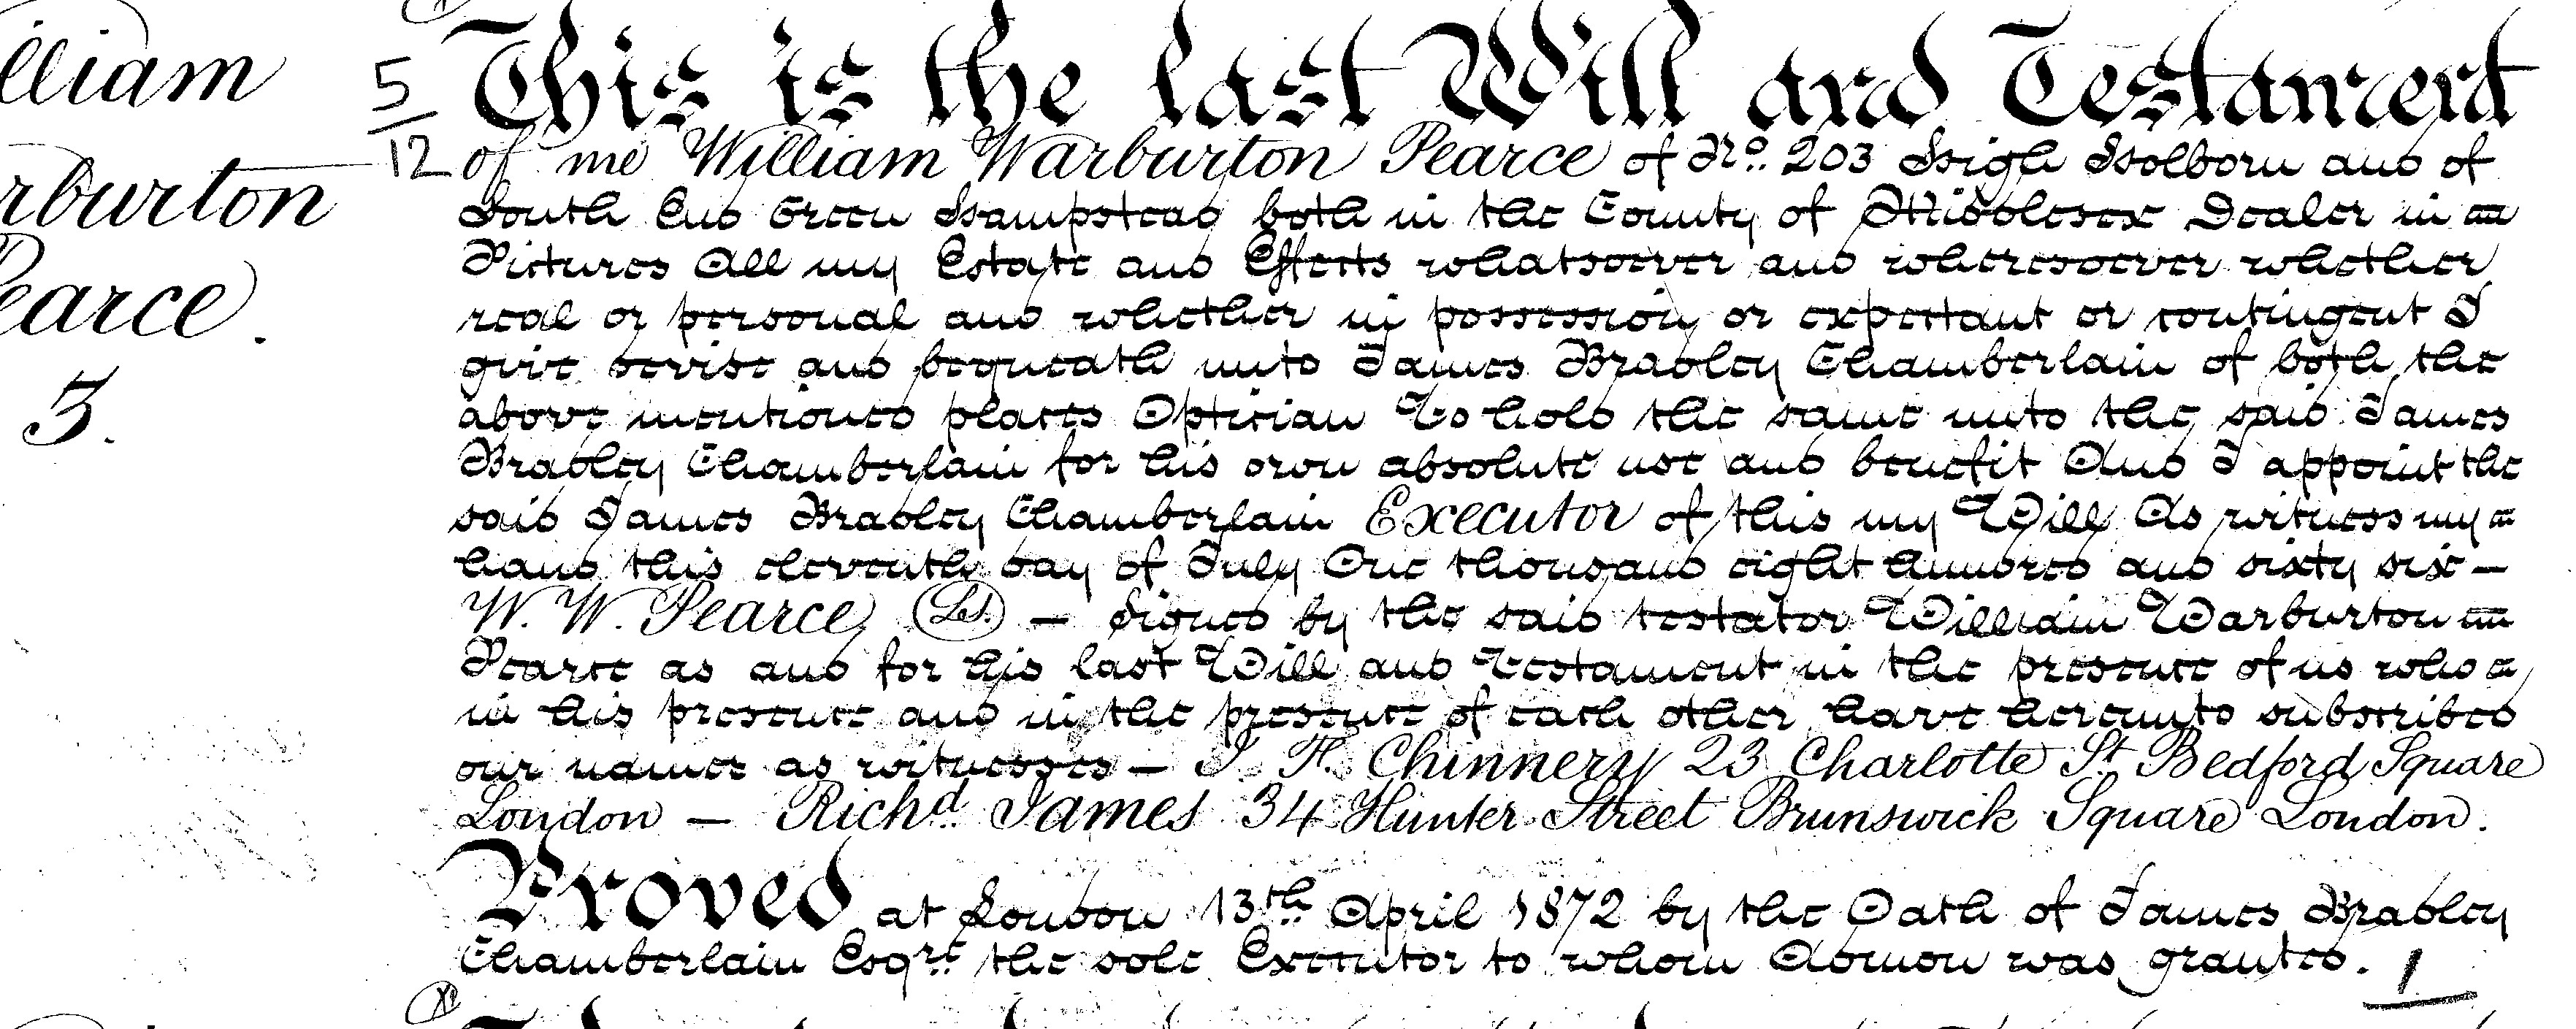 This is the last Will and Testament
of me William Warburton Pearce of No. 203 High Holborn and of
South End Green Hampstead both in the County of Middlesex Dealer in
Pictures All my Estate and Effects whatsoever and wheresoever whether
real or personal and whether in possession or expectant or contingent I
give devise and bequeath unto James Bradley Chamberlain of both the
above mentioned places Optician To hold the same unto the said James
Bradley Chamberlain for his own absolute use and benefit And I appoint the
said James Bradley Chamberlain Executor of this my Will As witness my
hand this eleventh day of July One thousand eight hundred and sixty six —
W. W. Pearce (L.S.) — Signed by the said testator William Warburton
Pearce as and for his last Will and Testament in the presence of us who
in his presence and in the presence of each other have hereunto subscribed
our names as witnesses — J. H. Chinnery 23 Charlotte St Bedford Square
London — Richd. James 34 Hunter Street Brunswick Square London.
Proved at London 13th April 1872 by the Oath of James Bradley
Chamberlain Esqre. the sole Executor to whom Admon was granted. 1
lliam
rburton
earce.
3.
5/12